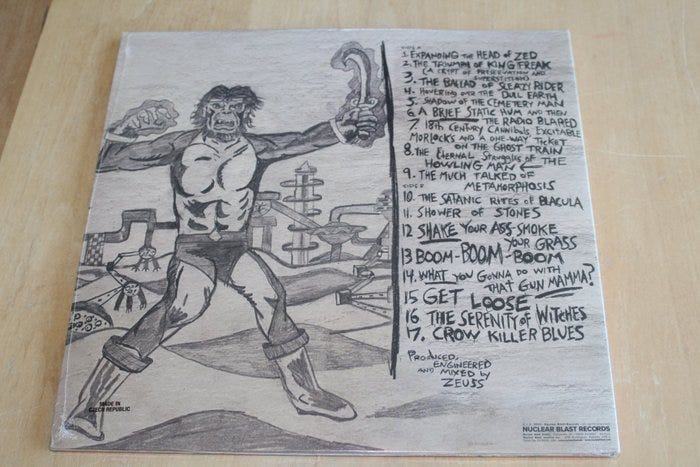 SIDE A
1. EXPANDING THE HEAD OF ZED
2. THE TRIUMPH OF KING FREAK
(A CRYPT OF PRESERVATION AND
SUPERSTITION)
3. THE BALLAD OF SLEAZY RIDER
4. HOVERING OVER THE DULL EARTH
5. SHADOW OF THE CEMETERY MAN
6. A BRIEF STATIC HUM AND THEN
THE RADIO BLARED
7. 18th CENTURY CANNIBALS, EXCITABLE
MORLOCKS AND A ONE-WAY TICKET
ON THE GHOST TRAIN
8. THE ETERNAL STRUGGLES OF THE
HOWLING MAN
9. THE MUCH TALKED OF
METAMORPHOSIS
SIDE B
10. THE SATANIC RITES OF BLACULA
11. SHOWER OF STONES
12 SHAKE YOUR ASS-SMOKE
YOUR GRASS
13 BOOM-BOOM-BOOM
14. WHAT YOU GONNA DO WITH
THAT GUN MAMMA?
15 GET LOOSE
16 THE SERENITY OF WITCHES
17. CROW KILLER BLUES
PRODUCED,
ENGINEERED
AND MIXED by
ZEUSS
MADE IN
CZECH REPUBLIC
NUCLEAR BLAST RECORDS